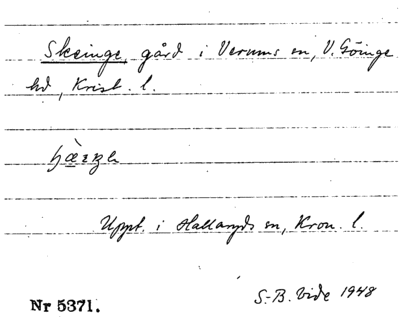 Skeinge, gård i Verums sn, V. Göinge
hd, Krist. l.
Uppt. i Hallaryds sn, Kron. l.
Nr 5371.
S.-B. Vide 1948